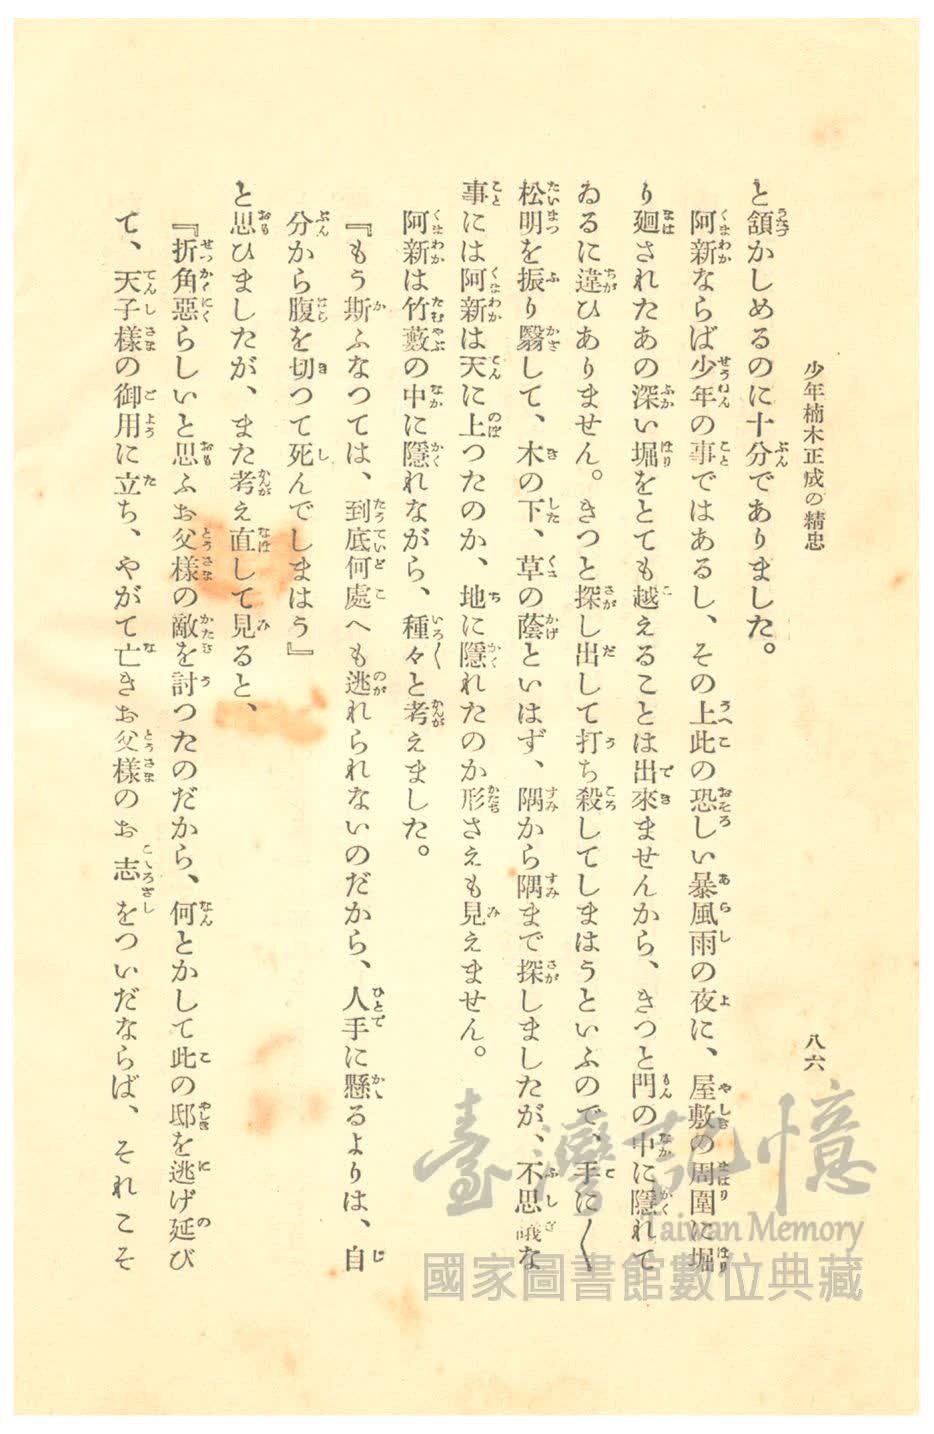 少年楠木正成の精忠
八六
と頷かしめるのに十分でありました。
阿新ならば少年の事ではあるし、その上此の恐しい暴風雨の夜に、屋敷の周圍に堀
り廻されたあの深い堀をとても越えることは出來ませんから、きつと門の中に隱れて
ゐるに違ひありません。きつと探し出して打ち殺してしまはうといふので、手に〱
松明を振り翳して、木の下、草の蔭といはず、隅から隅まで探しましたが、不思議な
事には阿新は天に上つたのか、地に隱れたのか形さえも見えません。
阿新は竹藪の中に隱れながら、種々と考えました。
『もう斯ふなつては、到底何處へも逃れられないのだから、人手に懸るよりは、自
分から腹を切つて死んでしまはう』
と思ひましたが、また考え直して見ると、
『折角惡らしいと思ふお父様の敵を討つたのだから、何とかして此の邸を逃げ延び
て、天子様の御用に立ち、やがて亡きお父様のお志をついだならば、それこそ
臺灣記憶
Taiwan Memory
國家圖書館數位典藏